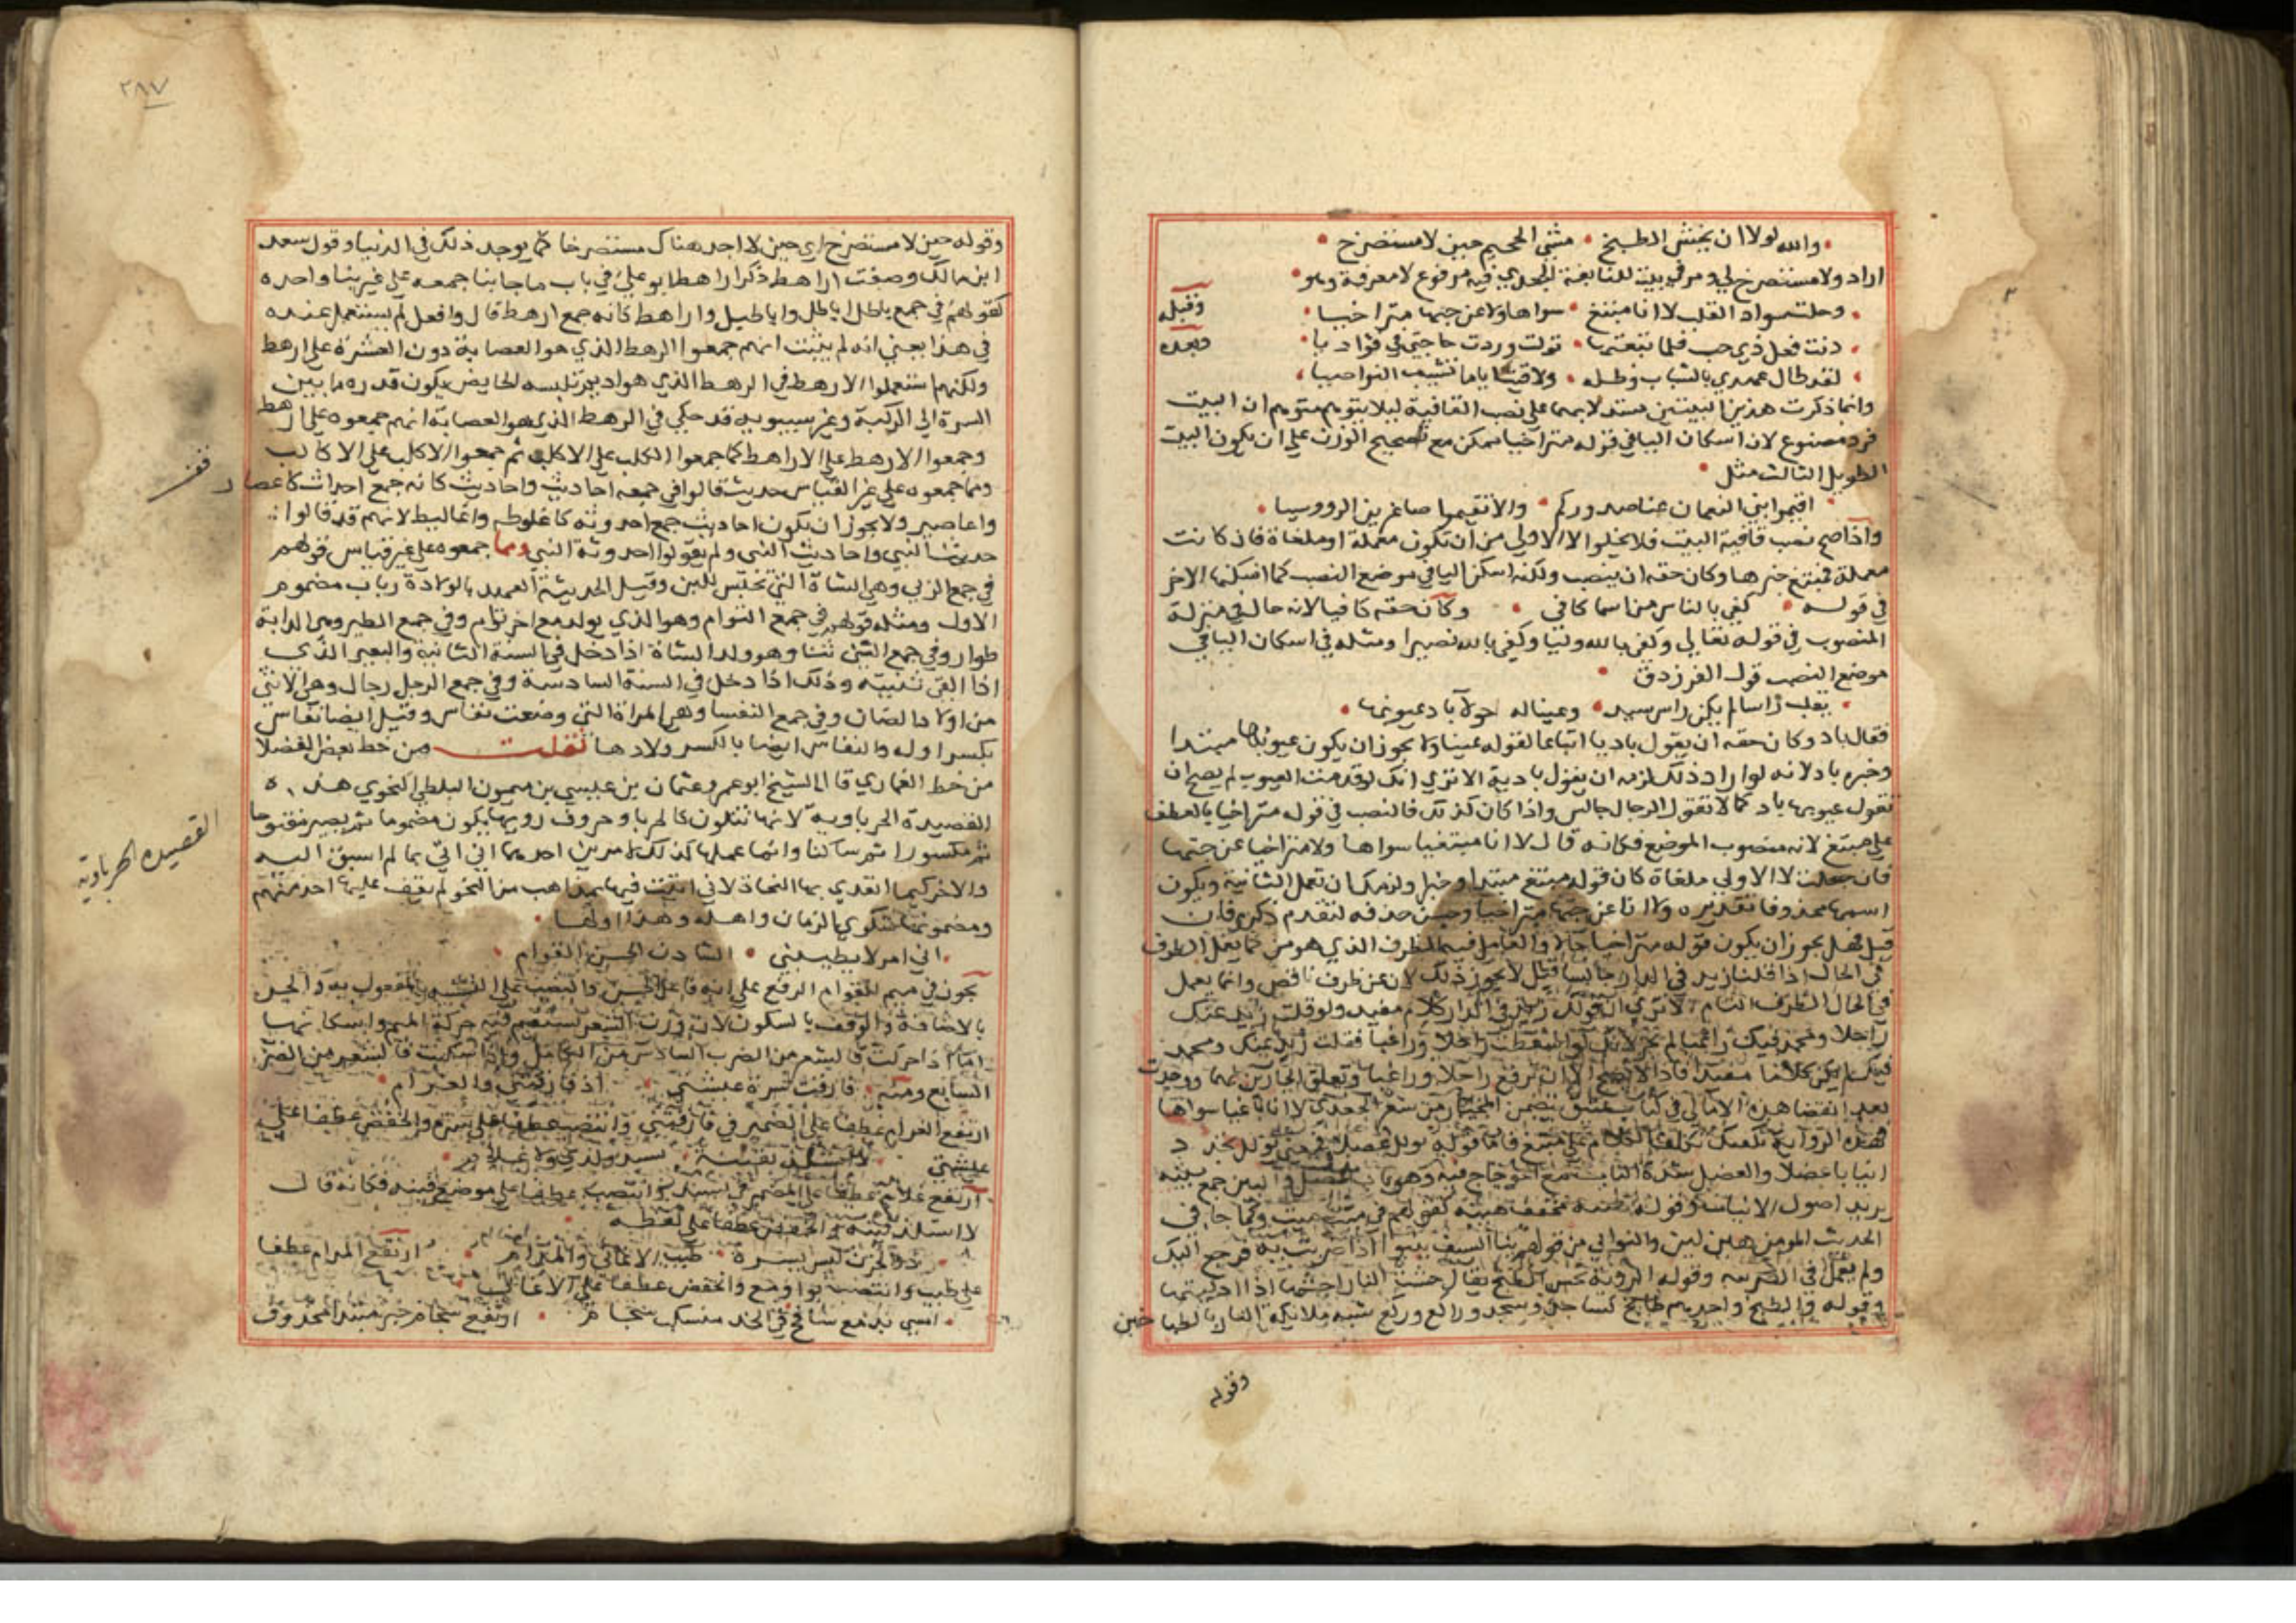 والله لولا ان يحش الطبخ • مشى الجحيم حين لا مستصرخ
اراد ولا مستصرخ لي ومر في بيت للنابغة الجعدي فيه مرفوع لا معرفة وهو
وحلت سواد القلب لا انا مبتغ • سواها ولا عن حبها متراخيا وقبله
دنت فعل ذي حب فلما تبعتها • تولت وردت حاجتي في فؤاديا وبعده
لقد طال عهدي بالشباب وظله • ولاقيت اياما تشيب النواصيا
وانما ذكرت هذين البيتين مستدلا بهما على نصب القافية ليلا يتوهم متوهم ان البيت
فرد مصنوع لان اسكان اليا في قوله متراخيا ممكن مع تصحيح الوزن على ان يكون البيت
الطويل الثالث مثل
اقيموا بني النعمان عنا صدوركم • والا تقيموا صاغرين الرووسا
واذا صح نصب قافية البيت فلا يخلوا لا الاولى من ان تكون معملة او ملغاة فان كانت
معملة فمبتغ خبرها وكان حقه ان ينصب ولكنه اسكن اليا في موضع النصب كما اسكنها الاخر
في قوله • كفى بالناس من اسما كافى • وكان حقه كافيا لانه حال في منزلة
المنصوب في قوله تعالى وكفى بالله وليا وكفى بالله نصيرا ومثله في اسكان اليا في
موضع النصب قول الفرزدق
يقلب راسا لم يكن راس سيد • وعينا له حولا باد عيوبها
فقال باد وكان حقه ان يقول باديا اتباعا لقوله عينا ولا يجوز ان يكون عيوبها مبتدا
وخبره باد لانه لو اراد ذلك لزمه ان يقول بادية الا ترى انك لو قدمت العيوب لم يصح ان
تقول عيوبها باد كما لا تقول الرجال جالس واذا كان كذلك فالنصب في قوله متراخيا بالعطف
على مبتغ لانه منصوب الموضع فكانه قال لا انا مبتغيا سواها ولا متراخيا عن حبها
فان جعلت لا الاولى ملغاة كان قوله مبتغ مبتدا وخبرا ولزمك ان تعمل الثانية ويكون
اسمها محذوفا تقديره ولا انا عن حبها متراخيا وحسن حذفه لتقدم ذكره فان
قيل فهل يجوز ان يكون قوله متراخيا حالا والعامل فيه الظرف الذي هو عن كما يعمل الظرف
في الحال اذا قلنا زيد في الدار جالسا قيل لا يجوز ذلك لان عن ظرف ناقص وانما يعمل
في الحال الظرف التام الا ترى ان قولك زيد في الدار كلام مفيد ولو قلت زيد عنك
راحلا ومحمد فيك راغبا لم يجز لانك لو اسقطت راحلا وراغبا فقلت زيد عنك ومحمد
فيك لم يكن كلاما مفيدا فاذا لا يصح الا ان ترفع راحلا وراغبا وتعلق الجارين بهما ووجدت
بعد انقضا هذه الامالي في كتاب عتيق يتضمن المختار من شعر الجعدي لا انا باغيا سواها
فهذه الرواية تكفيك تكلف الكلام على مبتغ
يريد اصول الاثياب وقوله مخفف هينه كقولهم في ميت ميت وكما جا في
الحديث المومن هين لين والنوابي من قولهم نبا السيف ينبوا اذا ضربت به فرجع اليك
ولم يعمل في الضريبة وقوله الروية تحش الطبخ يقال حش النار احشها اذا اذكيتها
وقوله والطبخ واحدهم طابخ كساجد وسجد وراكع وركع شبه ملائكة النار بالطباخين
وقوله
٢٨٧
وقوله حين لا مستصرخ اي حين لا احد هناك مستصرخا كما يوجد ذلك في الدنيا وقول سعد
ابن مالك وصفت اراهط ذكر اراهط ابو علي في باب ما جا بنا جمعه على غير بنا واحده
كقولهم في جمع باطل اباطل واباطيل واراهط كانه جمع ارهط قال وافعل لم يستعمل عنده
في هذا يعني انه لم يثبت انهم جمعوا الرهط الذي هو العصابة دون العشرة على ارهط
ولكنهم استعملوا الارهط في الرهط الذي هو اديم تلبسه الحايض يكون قدره ما بين
السرة الى الركبة وغير سيبويه قد حكى في الرهط الذي هو العصابة انهم جمعوه على ارهط
وجمعوا الارهط على الاراهط كما جمعوا الكلب على الاكلب ثم جمعوا الاكلب على الاكالب
ومما جمعوه على غير القياس حديث قالوا في جمعه احاديث واحاديث كانه جمع احداث كاعصار
واعاصير ولا يجوز ان تكون احاديث جمع احدوثه كاغلوطه واغاليط لانهم قد قالوا
حديث النبي واحاديث النبي ولم يقولوا احدوثة النبي ومما جمعوه على غير قياس قولهم
في جمع الربى وهي الشاة التي تحتبس للبن وقيل الحديثة العهد بالولادة رباب مضموم
الاول ومثله قولهم في جمع التوام وهو الذي يولد مع اخر تؤام وفي جمع الظير وهي الداية
ظوار وفي جمع الثنى ثنا وهو ولد الشاة اذا دخل في السنة الثانية والبعير الذي
اذا القى ثنيته وذلك اذا دخل في السنة السادسة وفي جمع الرجل رجال وهي الانثى
من اولاد الضان وفي جمع النفسا وهي المراة التي وضعت نفاس وقيل ايضا نفاس
بكسر اوله والنفاس ايضا بالكسر ولادها نقلت من خط بعض الفضلا
من خط الغماري قال الشيخ ابو عمرو عثمان بن عيسى بن ميمون البلطي النحوي هذه
القصيدة الحرباوية لانها تتلون كالحربا وحروف رويها يكون مضموما ثم يصير مفتوحا
ثم مكسورا ثم ساكنا وانما عملها كذلك لامرين احدهما اني اتي بما لم اسبق اليه
والاخر كيما اتحدي بها النحاة لاني اتيت فيها بمذاهب من النحو لم يقف عليها احد منهم
ومضمونها شكوى الزمان واهله وهذا اولها
اني امر لا يطبيني • الشادن الحسن القوام
يجوز في ميم القوام الرفع على انه فاعل الحسن والنصب على التشبيه بالمفعول به والجر
بالاضافة والوقف بالسكون لان وزن الشعر يستقيم فيه حركة الميم واسكانها
اما اذا حركت فالشعر من الضرب السادس من الكامل واذا سكنت فالشعر من الضرب
السابع ومنه • فارقت شرة عيشتي • اذ فارقتني والعرام
ارتفع العرام عطفا على الضمير في فارقتني وانتصب عطفا على شرة وانخفض عطفا على
عيشتي • لا استلذ بقينة • تشدو لدي ولا غلام
ارتفع غلام عطفا على المضمر في تشدو وانتصب عطفا على موضع قينة فكانه قال
لا استلذ قينة وانخفض عطفا على لفظه
ذو الحزن ليس يسره • طيب الاغاني والمدام • ارتفع المدام عطفا
على طيب وانتصب بواو مع وانخفض عطفا على الاغاني
امسي بدمع سافح في الخد منسكب سجام • ارتفع سجام خبر مبتدا محذوف
القصيده الحرباويه